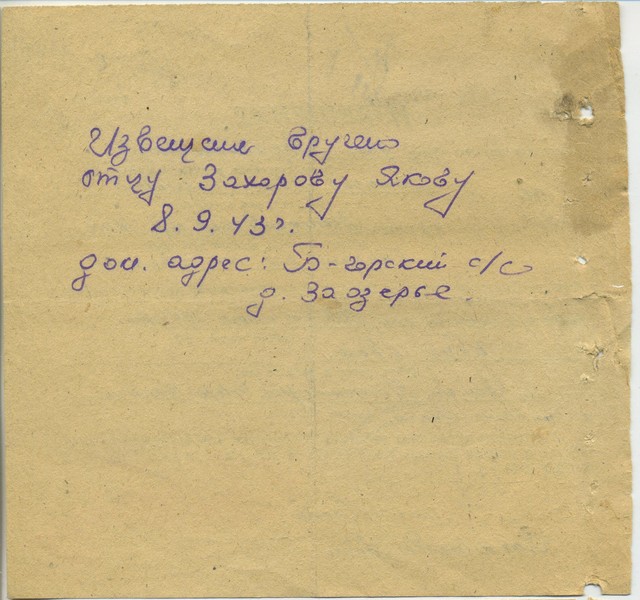 Извещение вручено
отцу Захорову Якову
8.9.43г.
дом. адрес: Б-горский с/с
д. Заозерье.